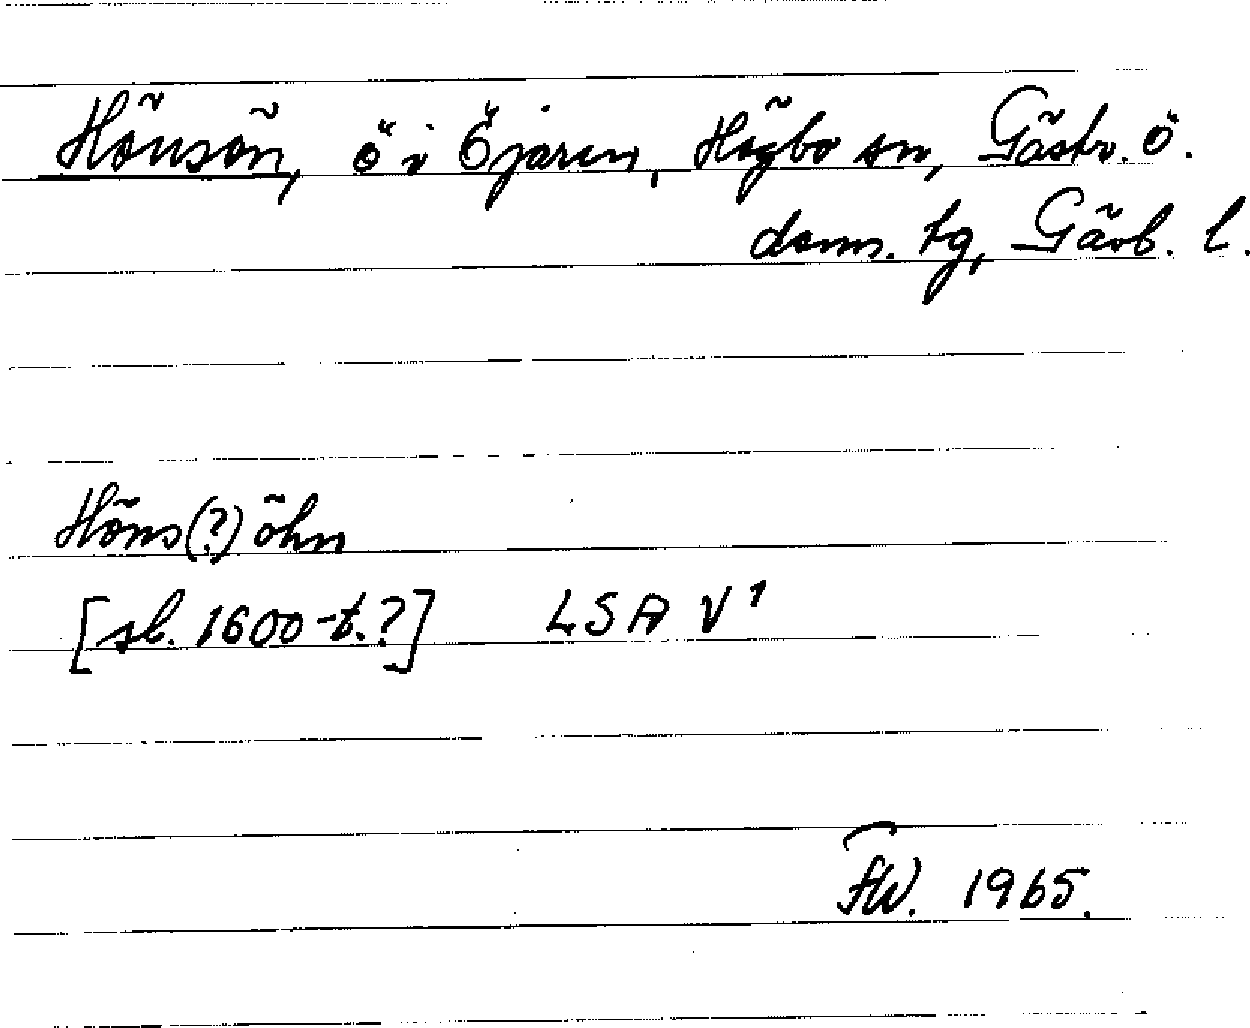 Hönsön, ö i Öjaren, Högbo sn, Gästr. ö.
doms. tg, Gävb. l.
Höns(?)öhn
[sl. 1600-t.?] LSA V¹
FW. 1965.